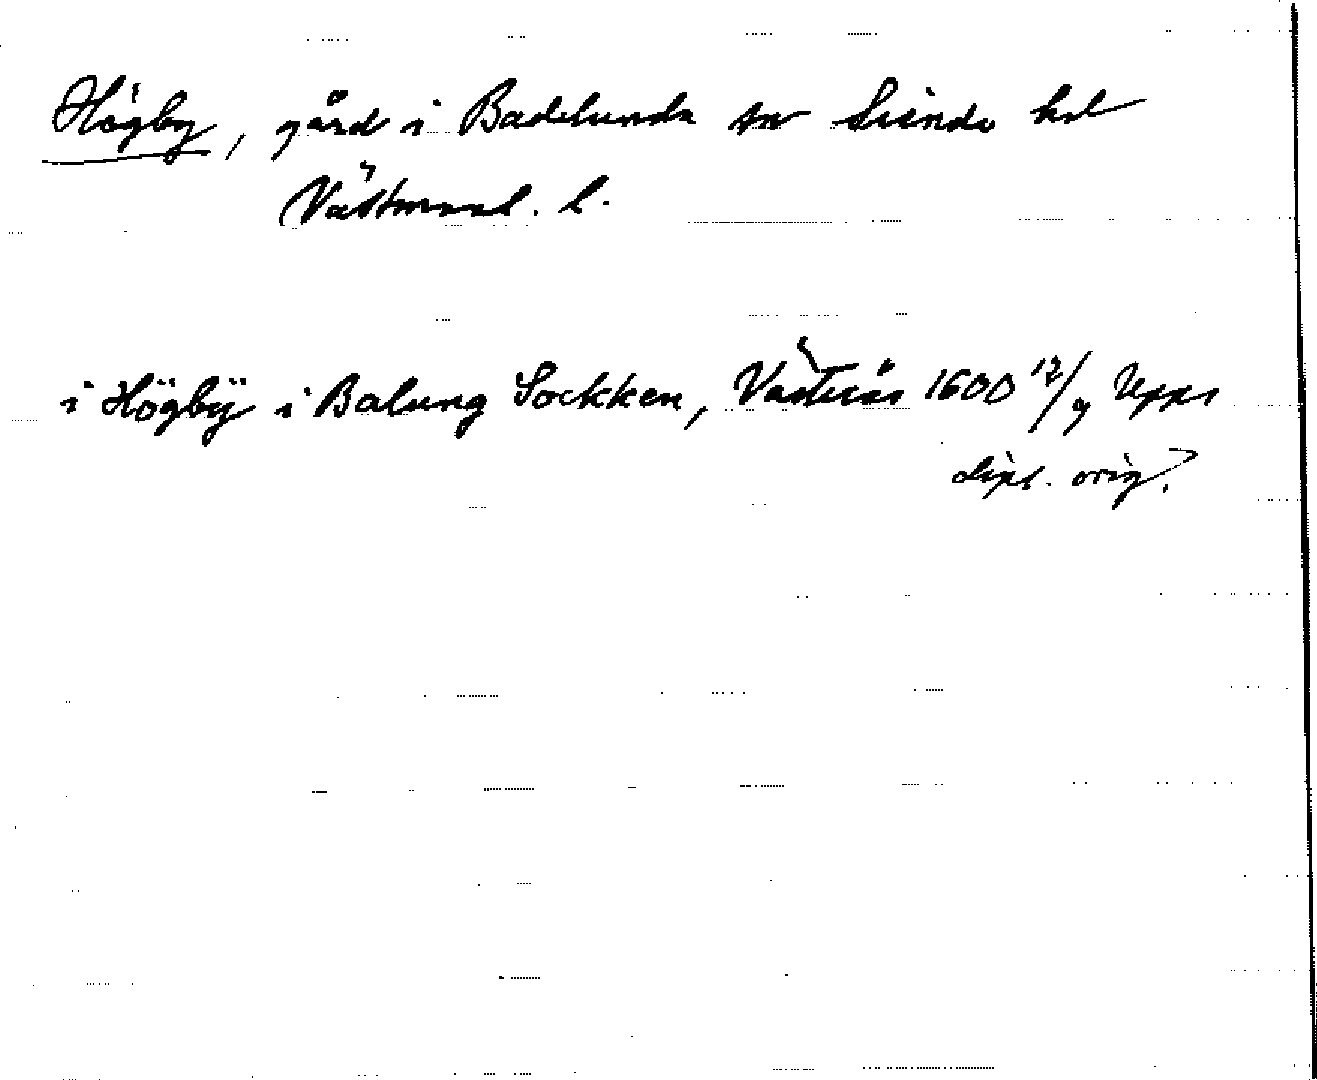 Högby, gård i Badelunda sn Siende hd
Västmanl. l.
i Högbÿ i Balung Sockken, Västerås 1600 12/9 Upps
dipl. orig.